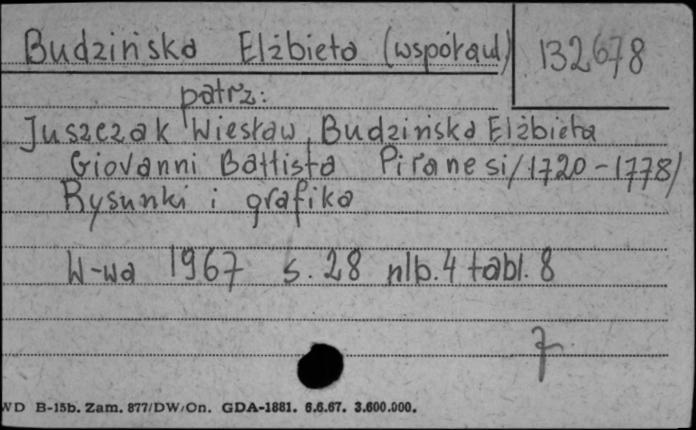 Budzińska Elżbieta (współaut) 132678
patrz:
Juszczak Wiesław, Budzińska Elżbieta
Giovanni Battista Piranesi /1720-1778/
Rysunki i grafika
W-wa 1967 s. 28 nlb. 4 tabl. 8
7
WD B-15b. Zam. 877/DW/On. GDA-1881. 6.6.67. 3.600.000.